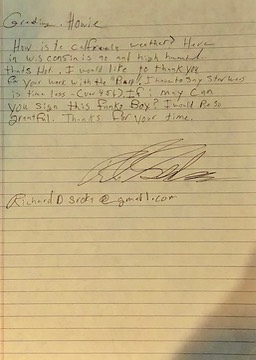 Grading, Howie
How is the weather? Here
in wisconsin is 90 and high
thats Hot. I would like to thank you
For your work with the "Bail", I have to say Star Wars
is time less - (ver 4 5 6). If i may Can
you sign this funko Boy? I would Be so
greatful. Thanks for your time.
Richard D @gmail.com